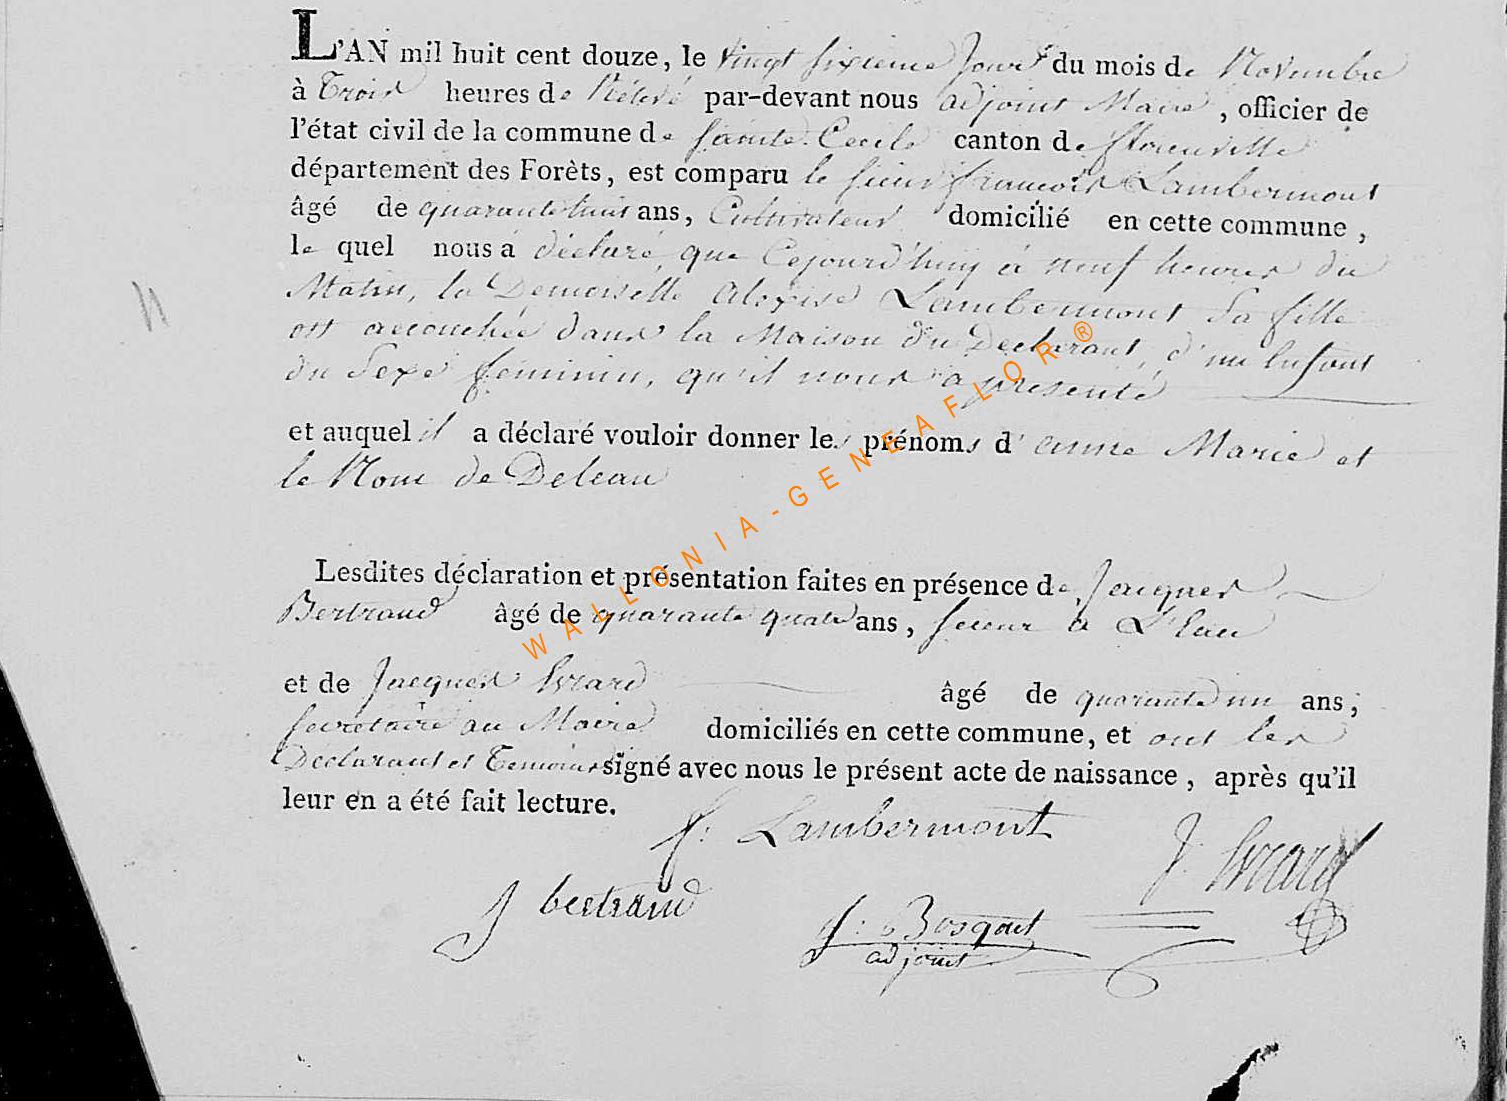 L'AN mil huit cent douze, le Vingt sixieme Jour du mois de Novembre
à Trois heures de Rélevé par-devant nous adjoint Maire, officier de
l'état civil de la commune de Sainte Cecile canton de florenville
département des Forèts, est comparu le sieur francois Lambermont
âgé de quarante huit ans, Cultivateur domicilié en cette commune,
le quel nous a déclaré, que Cejourd'huy à neuf heures du
Matin, la Demoiselle Lambermont Sa fille
est accouchée dans la Maison du Declarant, d'un Enfant
du Sexe féminin, qu'il nous a presenté
et auquel il a déclaré vouloir donner les prénoms d'anne Marie et
le Nom de Deleau
Lesdites déclaration et présentation faites en présence de Jacques
Bertrand âgé de quarante quatre ans, à L'Eau
et de Jacques Evrard âgé de quarante un ans;
secretaire au Maire domiciliés en cette commune, et ont les
Declarant et Temoins signé avec nous le présent acte de naissance, après qu'il
leur en a été fait lecture.
f: Lambermont
J. Evrard
J bertrand
Bosquet
adjoint
WALLONIA-GENEAFLOR®